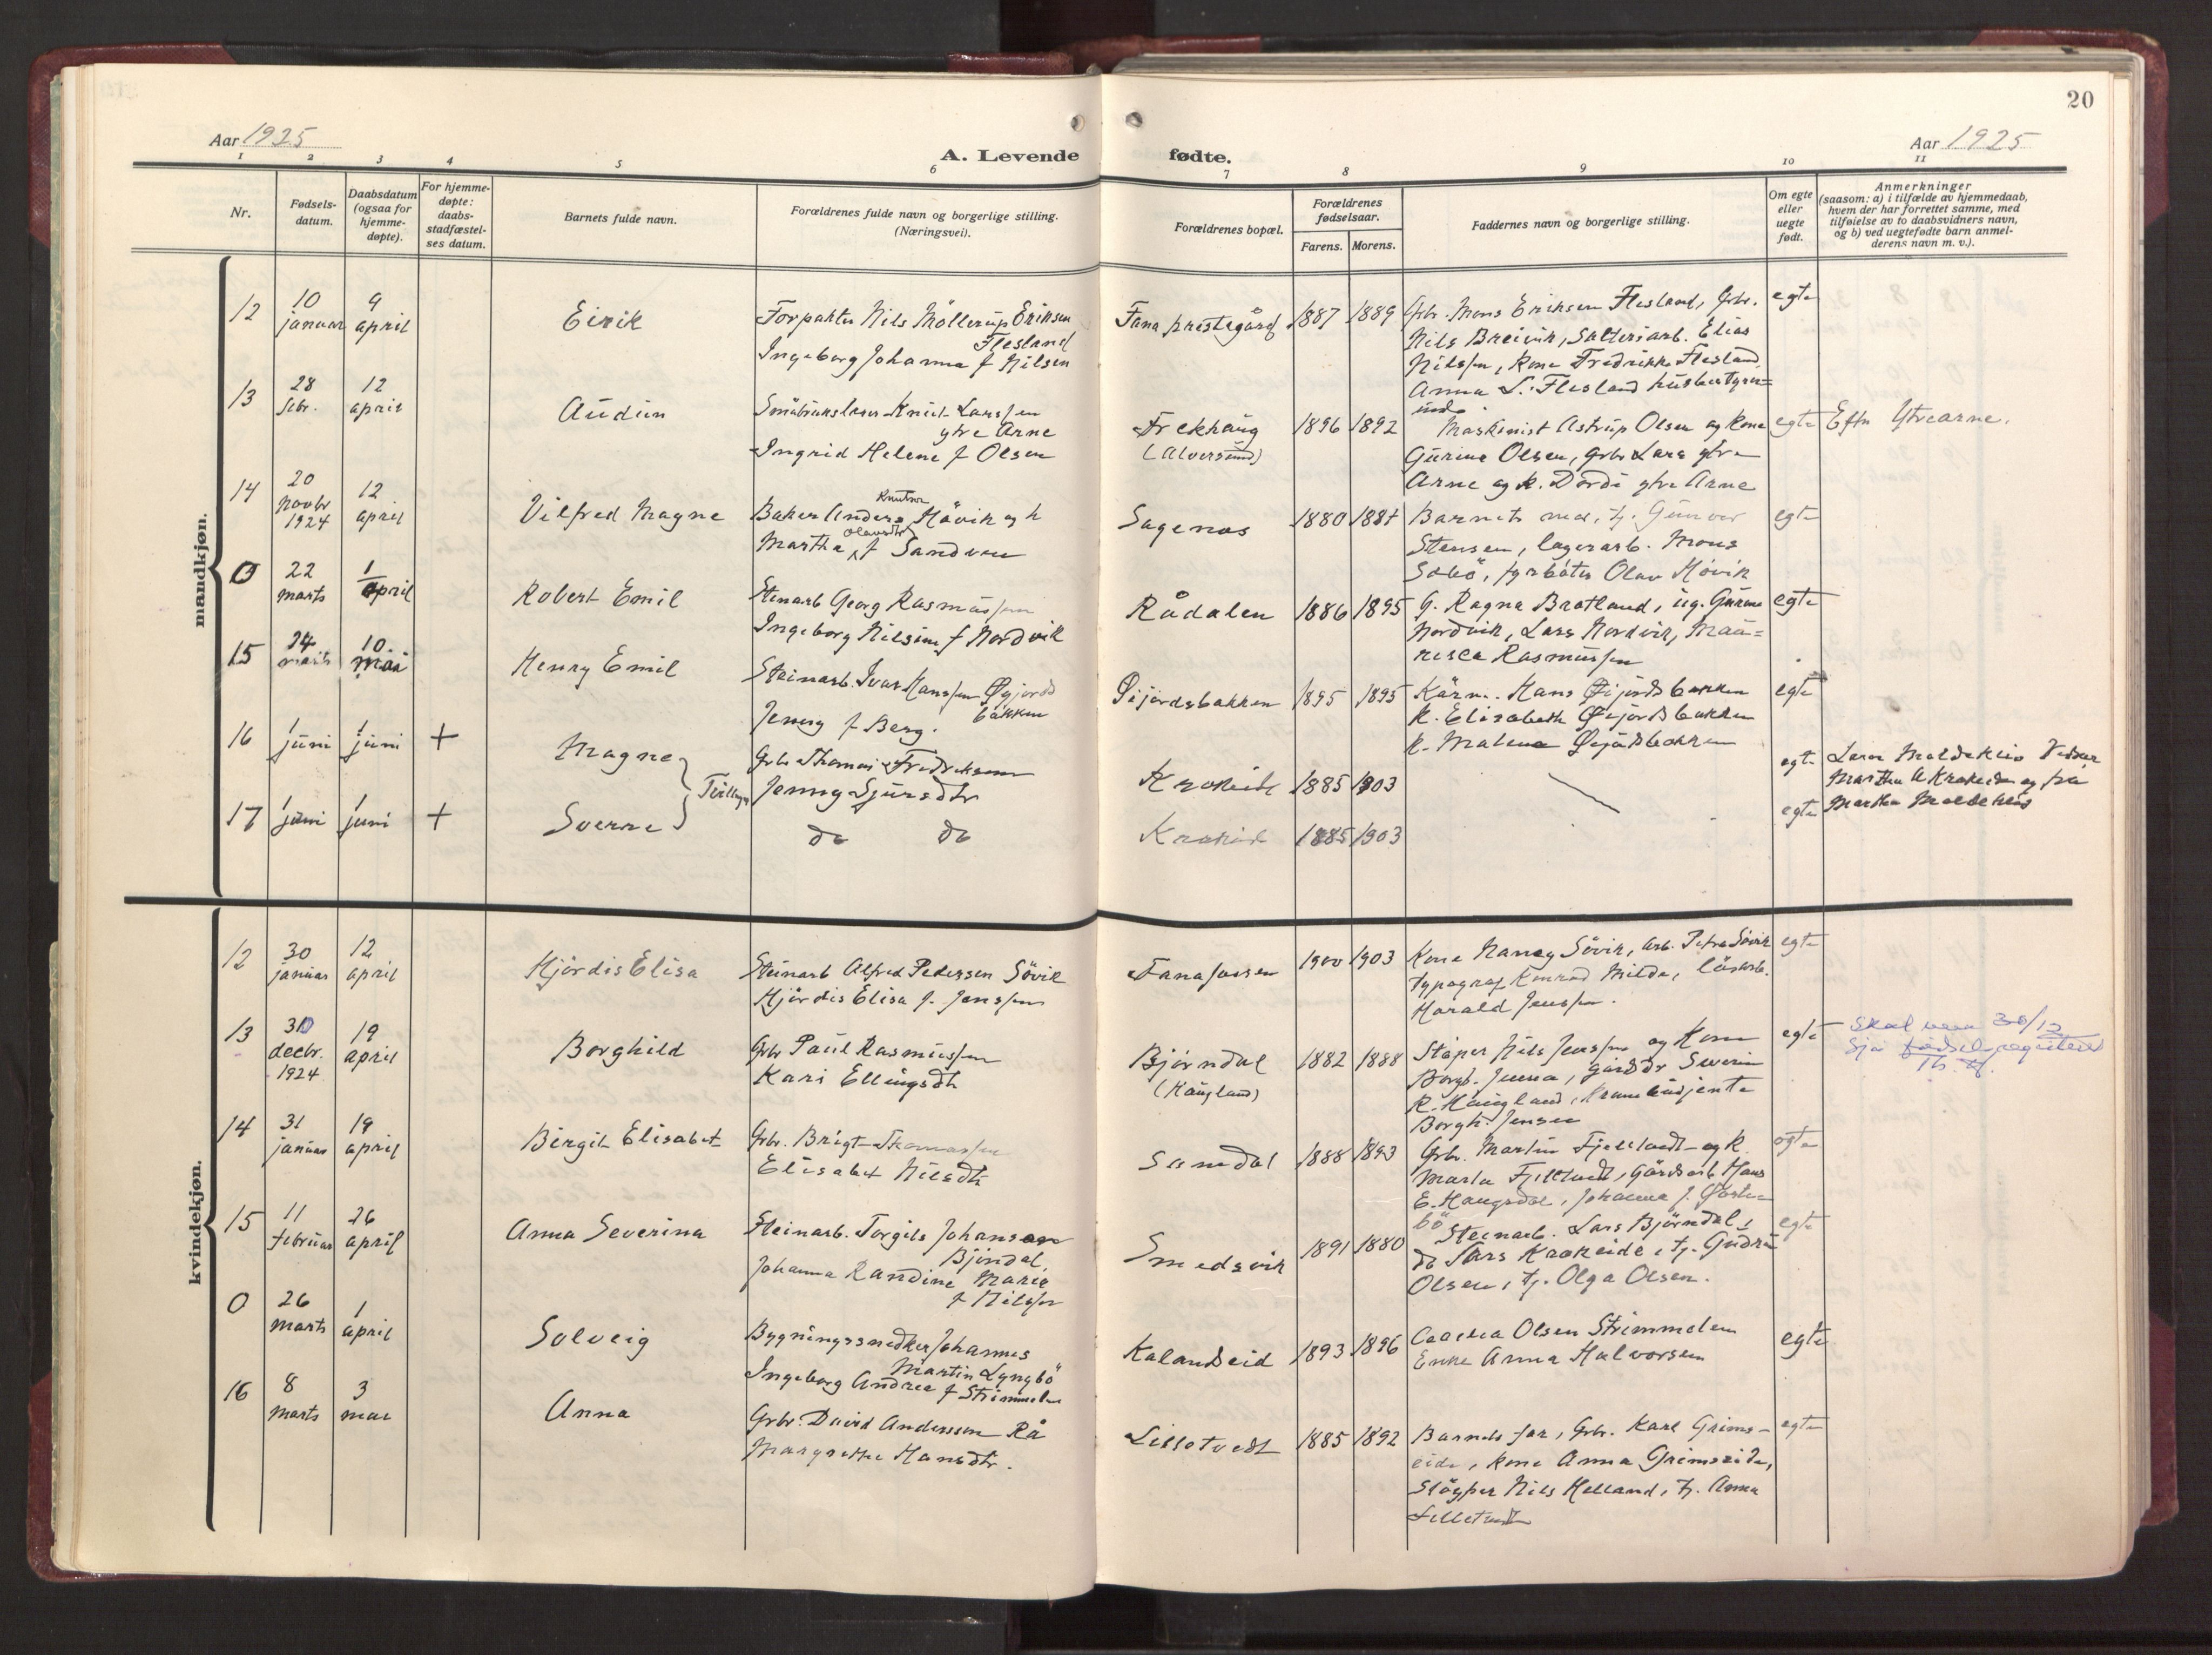 20
Aar 1925
A. Levende fødte.
Aar 1925
1 2 3 4 5 6 7 8 9 10 11
Nr.
Fødsels-
datum.
Daabsdatum
(ogsaa for
hjemme-
døpte).
For hjemme-
døpte:
daabs-
stadfæstel-
ses datum.
Barnets fulde navn.
Forældrenes fulde navn og borgerlige stilling.
(Næringsvei).
Forældrenes bopæl.
Forældrenes
fødselsaar.
Farens. Morens.
Faddernes navn og borgerlige stilling.
Om egte
eller
uegte
født.
Anmerkninger
(saasom: a) i tilfælde av hjemmedaab,
hvem der har forrettet samme, med
tilføielse av to daabsvidners navn,
og b) ved uegtefødte barn anmel-
derens navn m. v.).
mandkjøn.
12
10
januar
9
april
Eirik
Forpakter Nils Möllerup Eriksen
Flesland
Ingeborg Johanna f Nilsen
Fana prestegård
1887 1889
Grbr. Mons Eriksen Flesland, Grbr.
Nils Breivik, Salteriarb. Elias
Nilssen, Kone Fredrikke Flesland
Anna L. Flesland husbestyrer=
inde
egte
13
28
febr.
12
april
Audun
Småbrukslærer Knut Larssen
ytre Arne
Ingrid Helene f Olsen
Frekhaug
(Alversund)
1896 1892
Maskinist Astrup Olsen og kone
Gurine Olsen, Grbr Lars ytre
Arne og k. Dordi ytre Arne
egte
Eftn Ytrearne.
14
20
novbr
1924
12
april
Vilfred Magne
Knutsen
Baker Anders Hövik og h
Olavsdtr
Martha f Sandven
Sagenes
1880 1884
Barnets mor, tj. Gunvor
Stensen, lagerarb. Mons
Söbö, fyrböter Olav Hövik
egte
0
22
marts
1
april
Robert Emil
Stenarb Georg Rasmussen
Ingeborg Nilsine f Nordvik
Rådalen
1886 1895
G. Ragna Bratland, ug. Gurine
Nordvik, Lars Nordvik, Mau=
Rasmussen
egte
15
24
marts
10.
mai
Henry Emil
Steinarb. Ivar Hanssen Øyjords
bakken
Jenny f Berg.
Øijordsbakken
1895 1895
Hans Øijordsbakken
K. Elisabeth Øijordsbakken
K. Malena Øijordsbakken
egte
16
1
juni
1
juni
+
Magne
Tvillinger
Grbr Thomas Fredriksen
Jenny Sjursdtr
Krokeide
1885 1903
egte
Martha A Krokeide og fru
17
1
juni
1
juni
+
Sverre
do do
Krokeide
1885 1903
egte
kvindekjøn.
12
30
januar
12
april
Hjördis Elisa
Steinarb Alfred Pedersen Sövik
Hjördis Elisa f. Jenssen
Fanafossen
1900 1903
Kone Nancy Sövik, arb. Petra Sövik
typograf Konrad Milde, lösarb.
Harald Jenssen.
egte
13
30
decbr.
1924
19
april
Borghild
Grbr Paul Rasmussen
Kari Ellingsdtr
Bjørndal
(Haugland)
1882 1888
Stöper Nils Jenssen og Kone
Borgh. Jensen, Severin
R. Haugland, Krambudjente
Borgh. Jensen
egte
Skal være 30/12
Sjå fødselsregisteret
Th. H.
14
31
januar
19
april
Birgit Elisabet
Grbr. Brigt Thomassen
Elisabet Nilsdtr
Samdal
1888 1893
Grbr. Martin Fjelltvedt og K.
Marta Fjelltvedt, Gårdsarb. Hans
E. Haugsdal, Johanna f. Østre-
bö
egte
15
11
februar
26
april
Anna Severina
Steinarb. Torgils Johansen
Bjöndal,
Johanna Randine Marie
f Nilssen
Smedsvik
1891 1880
Steenarb. Lars Björndal,
do Lars Krokeide, tj. Gudrun
Olsen, tj. Olga Olsen.
egte
0
26
marts
1
april
Solveig
Bygningssnedker Johannes
Martin Lyngbö
Ingeborg Andrea f Strimmelen
Kalandseid
1893 1896
Olsen Strimmelen
Enke Anna Halvorsen
egte
16
8
marts
3
mai
Anna
Grbr. David Anderssen Rå
Margrethe Hansdtr.
Lilletvedt
1885 1892
Barnets far, Grbr. Karl Grims-
eide, kone Anna Grimseide,
Støyper Nils Helland, tj. Anna
Lilletvedt
egte